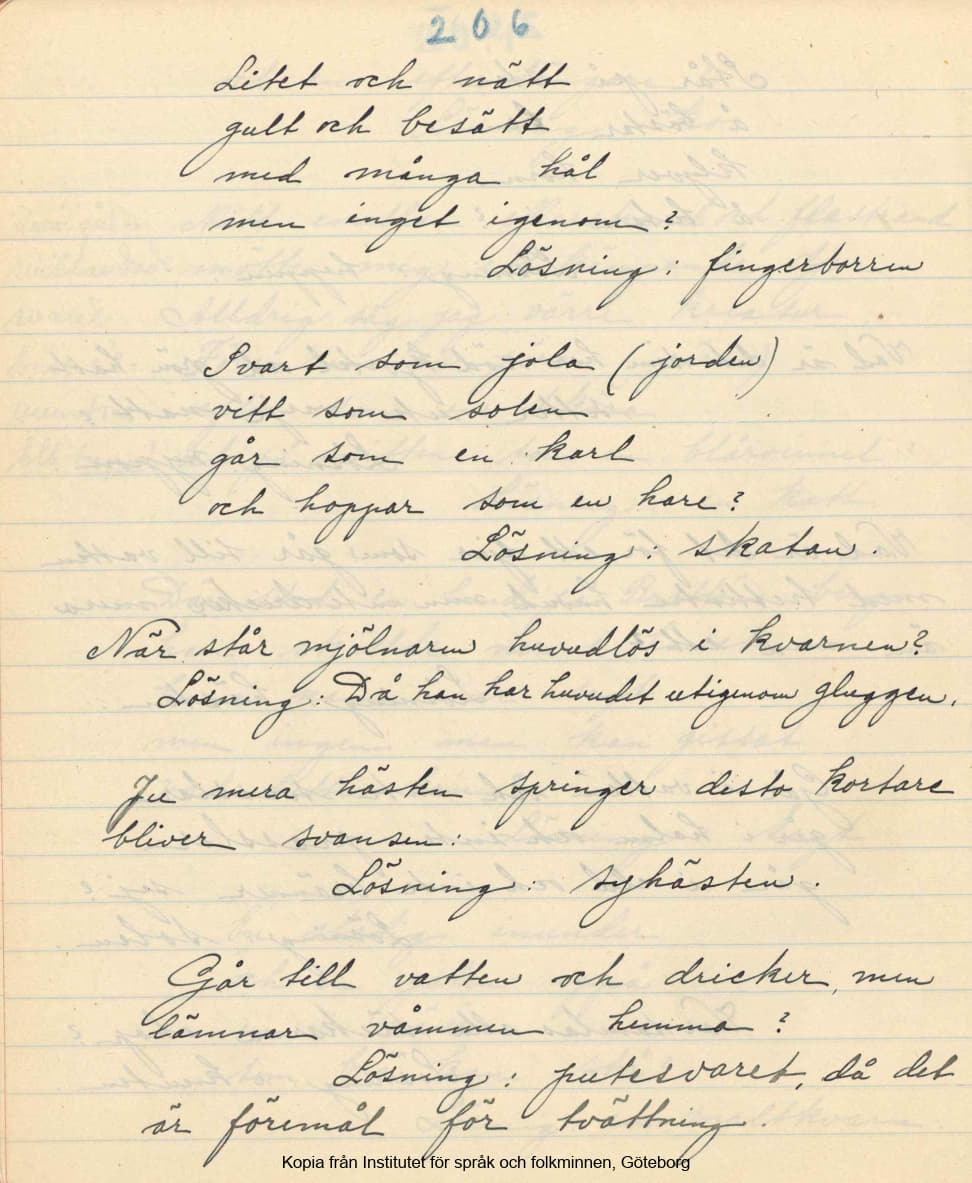 206
Litet och nätt
gult och besätt
med många hål
men inget igenom?
Lösning: fingerborren
Svart som jola (jorden)
vitt som solen
går som en karl
och hoppar som en hare?
Lösning: skatan.
När står mjölnaren huvudlös i kvarnen?
Lösning: Då han har huvudet utigenom gluggen.
Ju mera hästen springer desto kortare
bliver svansen:
Lösning: syhästen.
Går till vatten och dricker, men
lämnar våmmen hemma?
Lösning: putesvaret, då det
är föremål för tvättning.
Kopia från Institutet för språk och folkminnen, Göteborg